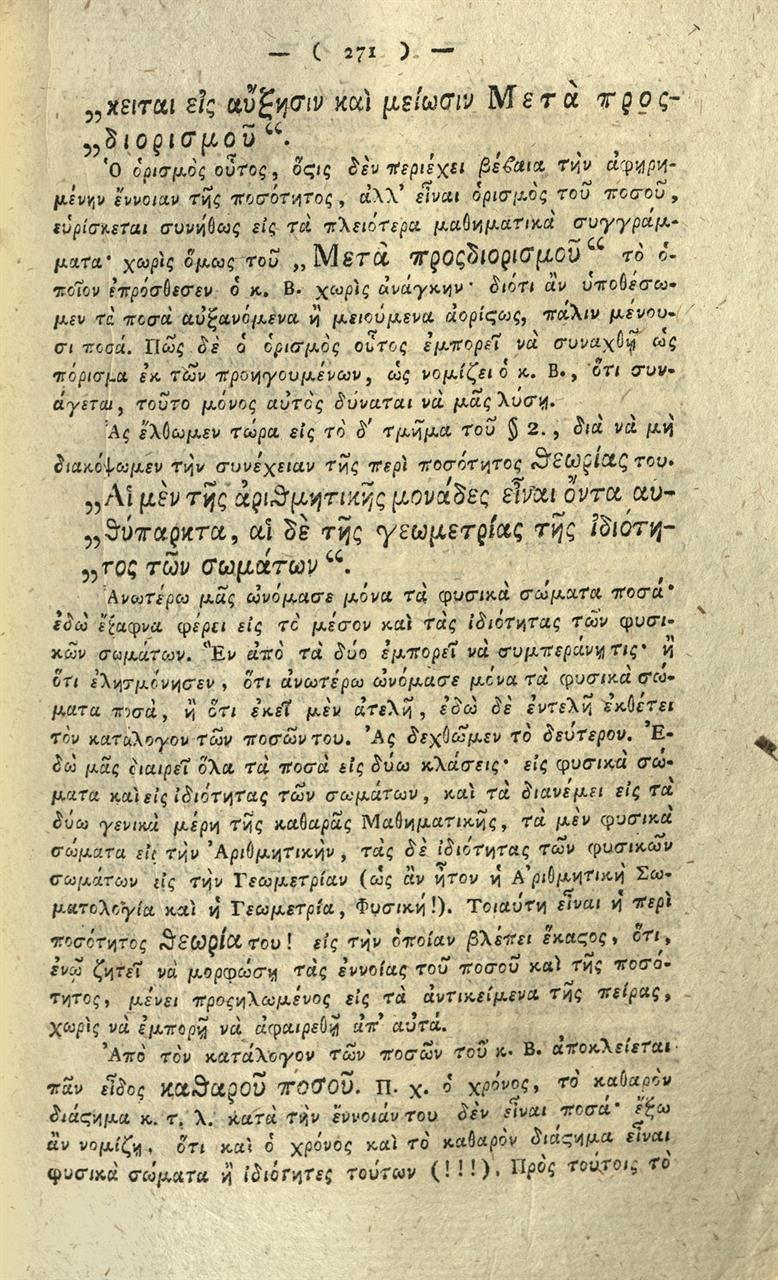 — ( 271 ) —
„κειται εἰς αὔξησιν καὶ μείωσιν Μετὰ προς-
„διορισμοῦ“.
Ὁ ὁρισμὸς οὗτος, ὅςις δὲν περιέχει βέβαια τὴν ἀφηρη-
μένην ἔννοιαν τῆς ποσότητος, ἀλλ᾽ εἶναι ὁρισμὸς τοῦ ποσοῦ,
εὑρίσκεται συνήθως εἰς τὰ πλειότερα μαθηματικὰ συγγράμ-
ματα· χωρὶς ὅμως τοῦ „Μετὰ προςδιορισμοῦ“ τὸ ὁ-
ποῖον ἐπρόσθεσεν ὁ κ. Β. χωρὶς ἀνάγκην· διότι ἂν ὑποθέσω-
μεν τὰ ποσὰ αὐξανόμενα ἢ μειούμενα ἀορίςως, πάλιν μένου-
σι ποσά. Πῶς δὲ ὁ ὁρισμὸς οὗτος ἐμπορεῖ νὰ συναχθῇ ὡς
πόρισμα ἐκ τῶν προηγουμένων, ὡς νομίζει ὁ κ. Β., ὅτι συν-
άγεται, τοῦτο μόνος αὐτὸς δύναται νὰ μᾶς λύσῃ.
Ἂς ἔλθωμεν τώρα εἰς τὸ δ΄ τμῆμα τοῦ § 2., διὰ νὰ μὴ
διακόψωμεν τὴν συνέχειαν τῆς περὶ ποσότητος θεωρίας του.
„Αἱ μὲν τῆς ἀριθμητικῆς μονάδες εἶναι ὄντα αυ-
„θύπαρκτα, αἱ δὲ τῆς γεωμετρίας τῆς ἰδιότη-
„τος τῶν σωμάτων“.
Ἀνωτέρω μᾶς ὠνόμασε μόνα τὰ φυσικὰ σώματα ποσά·
ἐδὼ ἔξαφνα φέρει εἰς τὸ μέσον καὶ τὰς ἰδιότητας τῶν φυσι-
κῶν σωμάτων. Ἓν ἀπὸ τὰ δύο ἐμπορεῖ νὰ συμπεράνῃ τις· ἢ
ὅτι ἐλησμόνησεν, ὅτι ἀνωτέρω ὠνόμασε μόνα τὰ φυσικὰ σώ-
ματα ποσὰ, ἢ ὅτι ἐκεῖ μὲν ἀτελῆ, ἐδὼ δὲ ἐντελῆ ἐκθέτει
τὸν κατάλογον τῶν ποσῶν του. Ἂς δεχθῶμεν τὸ δεύτερον. Ἐ-
δὼ μᾶς διαιρεῖ ὅλα τὰ ποσὰ εἰς δύω κλάσεις· εἰς φυσικὰ σώ-
ματα καὶ εἰς ἰδιότητας τῶν σωμάτων, καὶ τὰ διανέμει εἰς τὰ
δύω γενικὰ μέρη τῆς καθαρᾶς Μαθηματικῆς, τὰ μὲν φυσικὰ
σώματα εἰς τὴν Ἀριθμητικὴν, τὰς δὲ ἰδιότητας τῶν φυσικῶν
σωμάτων εἰς τὴν Γεωμετρίαν (ὡς ἂν ἦτον ἡ Ἀριθμητικὴ Σω-
ματολογία καὶ ἡ Γεωμετρία, Φυσική!). Τοιαύτη εἶναι ἡ περὶ
ποσότητος θεωρία του! εἰς τὴν ὁποίαν βλέπει ἕκαςος, ὅτι,
ἐνῷ ζητεῖ νὰ μορφώσῃ τὰς ἐννοίας τοῦ ποσοῦ καὶ τῆς ποσό-
τητος, μένει προςηλωμένος εἰς τὰ ἀντικείμενα τῆς πείρας,
χωρὶς νὰ ἐμπορῇ νὰ ἀφαιρεθῇ ἀπ᾽ αὐτά.
Ἀπὸ τὸν κατάλογον τῶν ποσῶν τοῦ κ. Β. ἀποκλείεται
πᾶν εἶδος καθαροῦ ποσοῦ. Π. χ. ὁ χρόνος, τὸ καθαρὸν
διάςημα κ. τ. λ. κατὰ τὴν ἔννοιάν του δὲν εἶναι ποσά· ἔξω
ἂν νομίζῃ, ὅτι καὶ ὁ χρόνος καὶ τὸ καθαρὸν διάςημα εἶναι
φυσικὰ σώματα ἢ ἰδιότητες τούτων (!!!). Πρὸς τούτοις τὸ